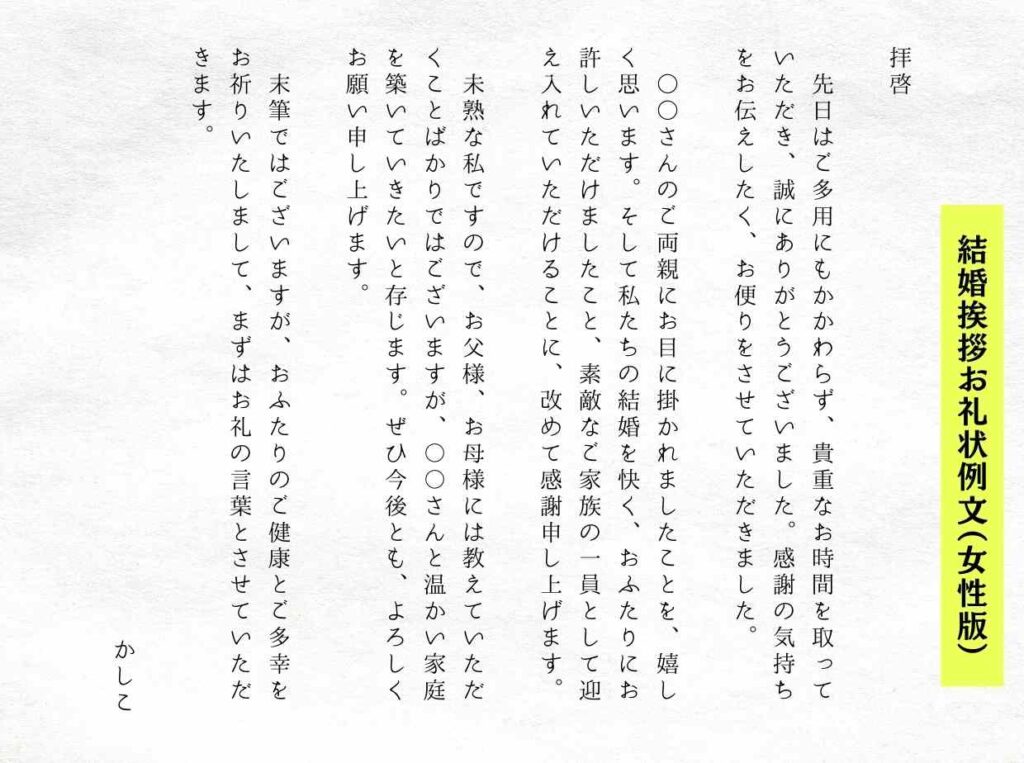 結婚挨拶お礼状例文(女性版)
拝啓
先日はご多用にもかかわらず、貴重なお時間を取って
いただき、誠にありがとうございました。感謝の気持ち
をお伝えしたく、お便りをさせていただきました。
〇〇さんのご両親にお目に掛かれましたことを、嬉し
く思います。そして私たちの結婚を快く、おふたりにお
許しいただけましたこと、素敵なご家族の一員として迎
え入れていただけることに、改めて感謝申し上げます。
未熟な私ですので、お父様、お母様には教えていただ
くことばかりではございますが、〇〇さんと温かい家庭
を築いていきたいと存じます。ぜひ今後とも、よろしく
お願い申し上げます。
末筆ではございますが、おふたりのご健康とご多幸を
お祈りいたしまして、まずはお礼の言葉とさせていただ
きます。
かしこ